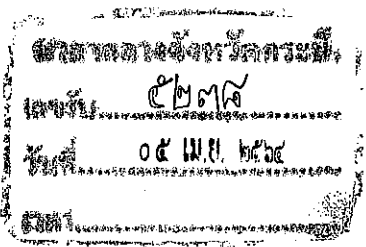 ศาลากลางจังหวัดกระบี่
เลขรับ ๕๒๓๘
วันที่ ๐๕ เม.ย. ๒๕๖๔
เวลา